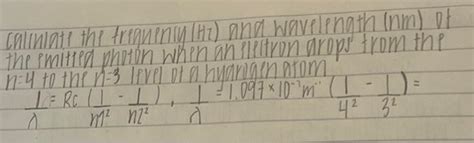 calculate the frequency (Hz) and wavelength (nm) of
the emitted photon when an electron drops from the
n=4 to the n=3 level of a hydrogen atom
1/λ = Rc (1/m² - 1/n²), 1/λ = 1.097 × 10⁻⁷ m⁻¹ (1/4² - 1/3²) =